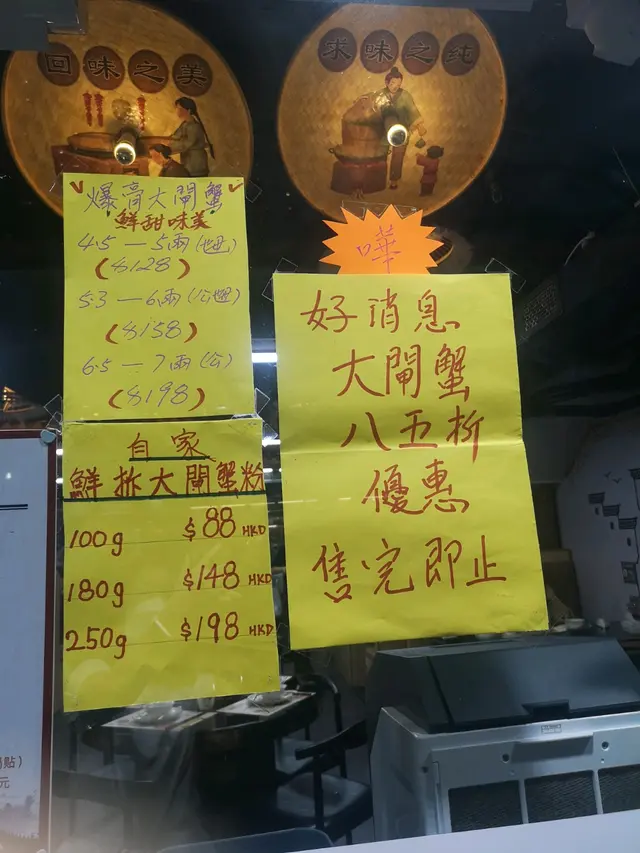 回味之美
求味之纯
爆膏大閘蟹
鮮甜味美
4.5—5兩(乸)
($128)
5.3—6兩(公乸)
($158)
6.5—7兩(公)
($198)
自家
鮮拆大閘蟹粉
100g $88 HKD
180g $148 HKD
250g $198 HKD
嘩
好消息
大閘蟹
八五折
優惠
售完即止
貼)
元